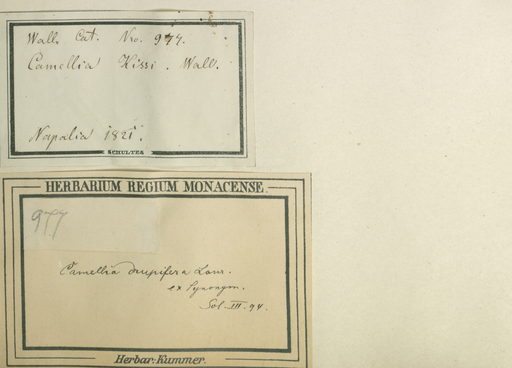 Wall. Cat. Nro. 977.
Camellia Kissi. Wall.
Napalia 1821.
SCHULTES
HERBARIUM REGIUM MONACENSE.
977
Camellia drupifera Lour.
ex Synonym.
Sol. III. 94.
Herbar. Kummer.